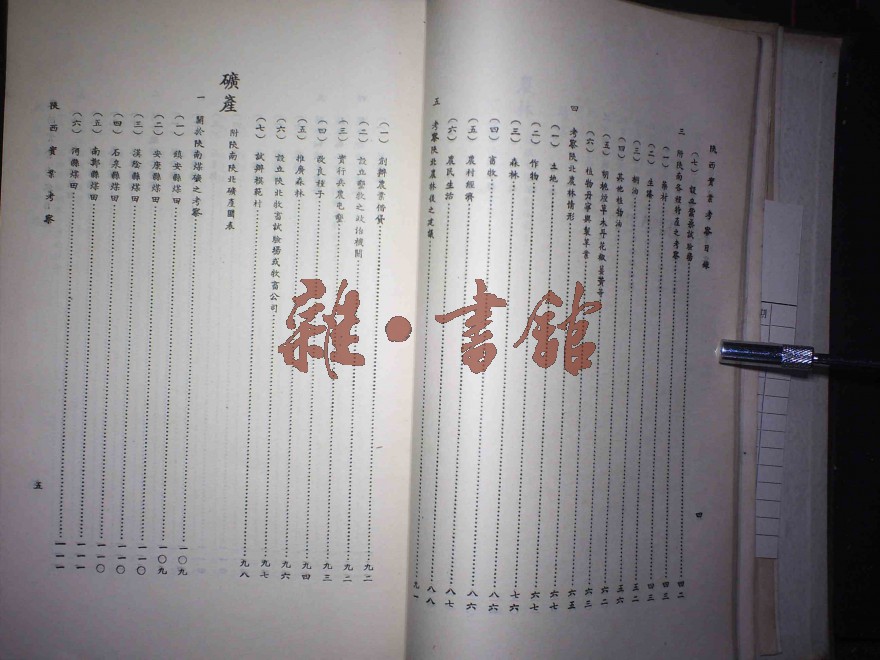 陝西實業考察目錄
三 附陝南各種特產之考察……四二
(一) 藥材……四三
(二) 生漆……四三
(三) 桐油……五二
(四) 其他植物油……五六
(六) 植物丹寧與製革業……六三
四 考察陝北農林情形……六五
(一) 土地……六七
(二) 作物……六七
(三) 森林……七六
(四) 畜牧……八六
(五) 農村經濟……八六
(六) 農民生活……八七
五 考察陝北農林後之建議……八八
四
(一) 創辦農業借貸……九二
(二) 設立墾牧之政治機關……九二
(三) 實行兵農屯墾……九三
(四) 改良種子
(五) 推廣森林……九四
(六) 設立陝北牧畜試驗場或牧畜公司……九六
(七) 試辦模範村……九七
附陝南陝北礦產圖表……九八
礦產
一 關於陝南煤礦之考察
(一) 鎮安縣煤田……一〇九
(二) 安康縣煤田……一〇九
(三) 漢陰縣煤田……一一〇
(四) 石泉縣煤田……一一〇
(五) 南鄭縣煤田……一一〇
(六) 沔縣煤田……一一一
陝西實業考察
五
雜·書館